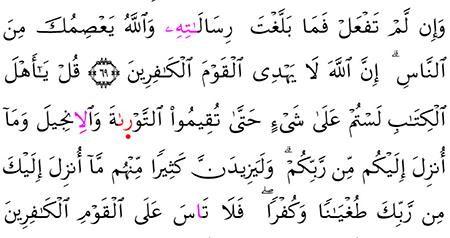 وَإِن لَّمْ تَفْعَلْ فَمَا بَلَّغْتَ رِسَالَـٰتِهِۦ وَاللَّهُ يَعْصِمُكَ مِنَ
النَّاسِ ۗ إِنَّ اللَّهَ لَا يَهْدِى الْقَوْمَ الْكَـٰفِرِينَ ۝٦٩ قُلْ يَـٰٓأَهْلَ
الْكِتَـٰبِ لَسْتُمْ عَلَىٰ شَىْءٍ حَتَّىٰ تُقِيمُوا۟ التَّوْرَىٰةَ وَالْإِنجِيلَ وَمَآ
أُنزِلَ إِلَيْكُم مِّن رَّبِّكُمْ ۗ وَلَيَزِيدَنَّ كَثِيرًا مِّنْهُم مَّآ أُنزِلَ إِلَيْكَ
مِن رَّبِّكَ طُغْيَـٰنًا وَكُفْرًا ۖ فَلَا تَاسَ عَلَى الْقَوْمِ الْكَـٰفِرِينَ